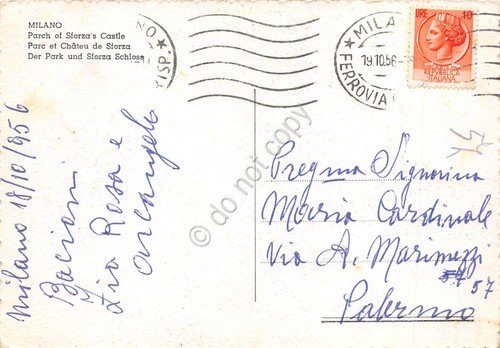 MILANO
Parch of Sforza's Castle
Parc et Châteu de Sforza
Der Park und Sforza Schloss
MILANO
FERROVIA
19.10.56
LIRE 10
REPVBBLICA
ITALIANA
Milano 18/10/956
Bacioni
Zia Rosa e
Arcangelo
Pregma Signorina
Maria Cardinale
Via A. Marinuzzi
57
Palermo
do not copy